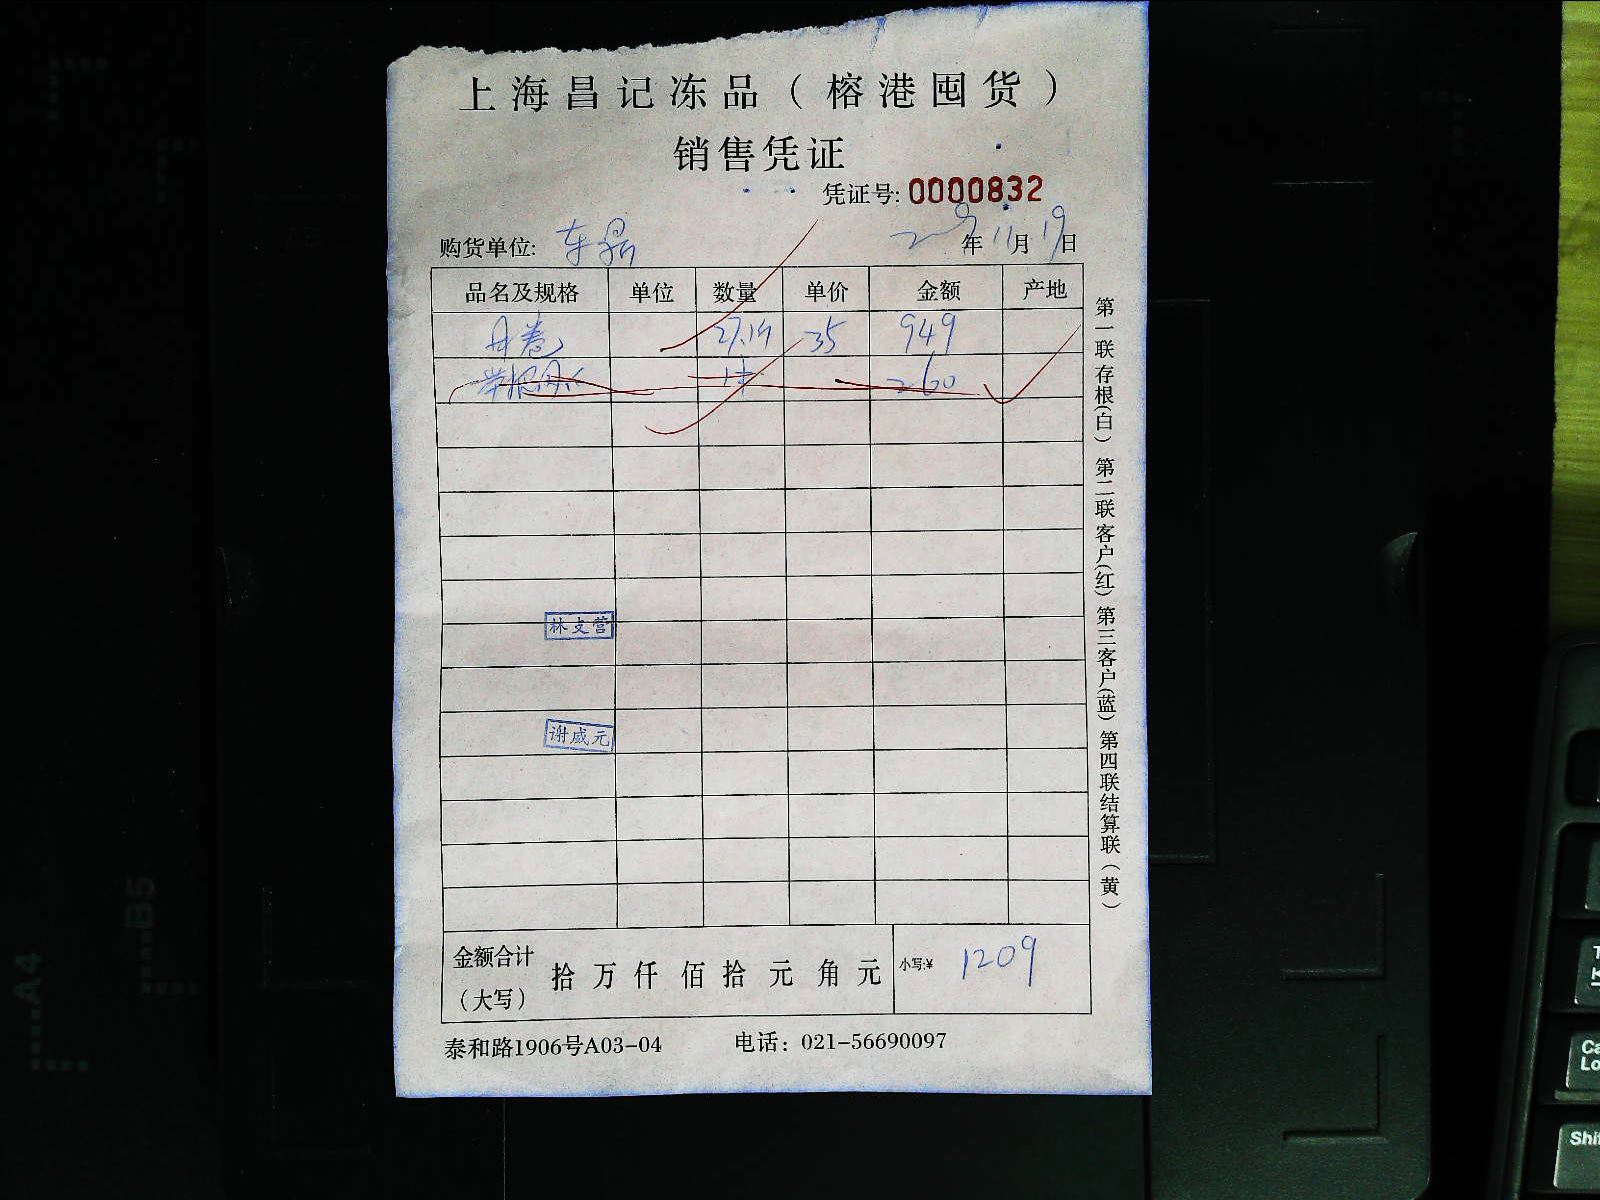 上海昌记冻品（榕港囤货）
销售凭证
凭证号: 0000832
购货单位: 年 11月 19日
品名及规格 单位 数量 单价 金额 产地
35 949
260
林支营
谢咸元
金额合计（大写） 拾 万 仟 佰 拾 元 角 元 小写:¥ 1209
泰和路1906号A03-04 电话：021-56690097
第一联存根(白) 第二联客户(红) 第三客户(蓝) 第四联结算联（黄）
A4
B5
Shi